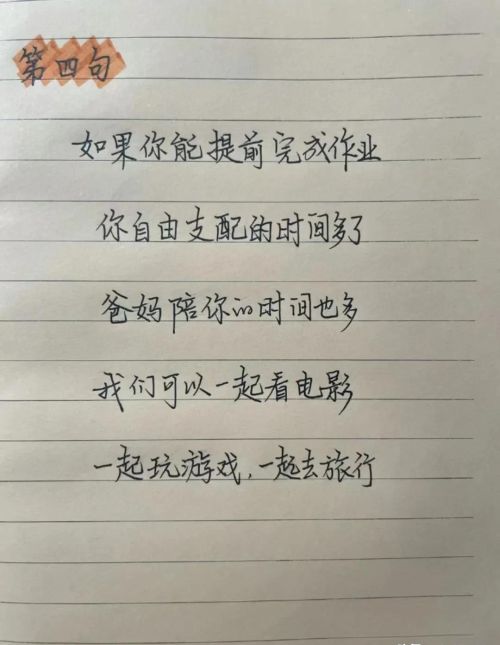 第四句
如果你能提前完成作业
你自由支配的时间多了
爸妈陪你的时间也多
我们可以一起看电影
一起玩游戏，一起去旅行